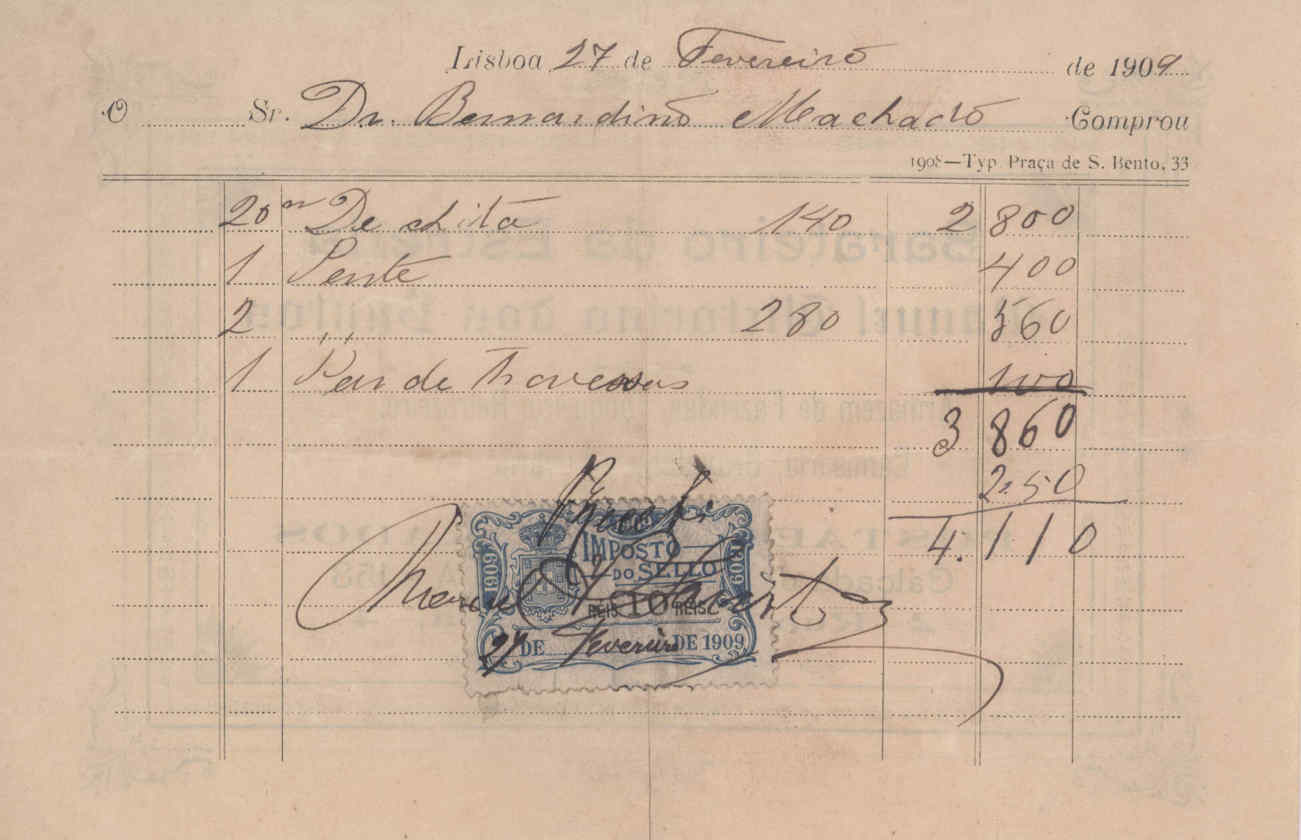 Lisboa 27 de Fevereiro de 1909
O Sr. Dr. Bernardino Machado Comprou
1908—Typ. Praça de S. Bento, 33
20 m De chita 140 2 800
1 Pente 400
2 ,, 280 560
1 Par de travessas 100
3 860
250
4.110
Recebi
IMPOSTO
DO SELLO
1909 1909
REIS 10 REIS
27 DE Fevereiro DE 1909